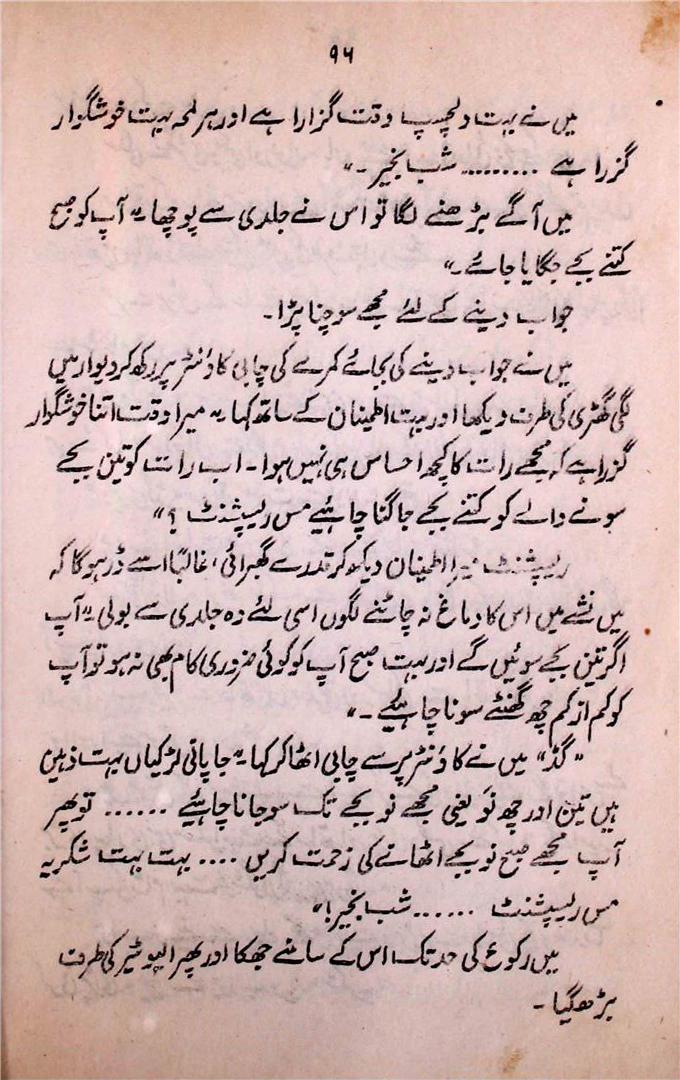 ۹۶
میں نے بہت دلچسپ وقت گزارا ہے اور ہر لمحہ بہت خوشگوار
گزرا ہے ......... شب بخیر ۔"
میں آگے بڑھنے لگا تو اس نے جلدی سے پوچھا " آپ کو صبح
کتنے بجے جگایا جائے ۔"
جواب دینے کے لئے مجھے سوچنا پڑا ۔
میں نے جواب دینے کی بجائے کمرے کی چابی کاؤنٹر پر رکھ کر دیوار میں
لگی گھڑی کی طرف دیکھا اور بہت اطمینان کے ساتھ کہا " میرا وقت اتنا خوشگوار
گزرا ہے کہ مجھے رات کا کچھ احساس ہی نہیں ہوا ۔ اب رات کو تین بجے
سونے والے کو کتنے بجے جاگنا چاہئیے مس ریسپشنٹ ؟"
ریسپشنٹ میرا اطمینان دیکھ کر قدرے گھبرائی ، غالباً اسے ڈر ہوگا کہ
میں نشے میں اس کا دماغ نہ چاٹنے لگوں اسی لئے وہ جلدی سے بولی " آپ
اگر تین بجے سوئیں گے اور بہت صبح آپ کو کوئی ضروری کام بھی نہ ہو تو آپ
کو کم از کم چھ گھنٹے سونا چاہئیے ۔"
"گڈ" میں نے کاؤنٹر پر سے چابی اٹھا کر کہا " جاپانی لڑکیاں بہت ذہین
ہیں تین اور چھ نَو یعنی مجھے نو بجے تک سو جانا چاہئیے ...... تو پھر
آپ مجھے صبح نو بجے اٹھانے کی زحمت کریں .... بہت بہت شکریہ
مس ریسپشنٹ ...... شب بخیر !"
میں رکوع کی حد تک اس کے سامنے جھکا اور پھر الیوٹیر کی طرف
بڑھ گیا ۔